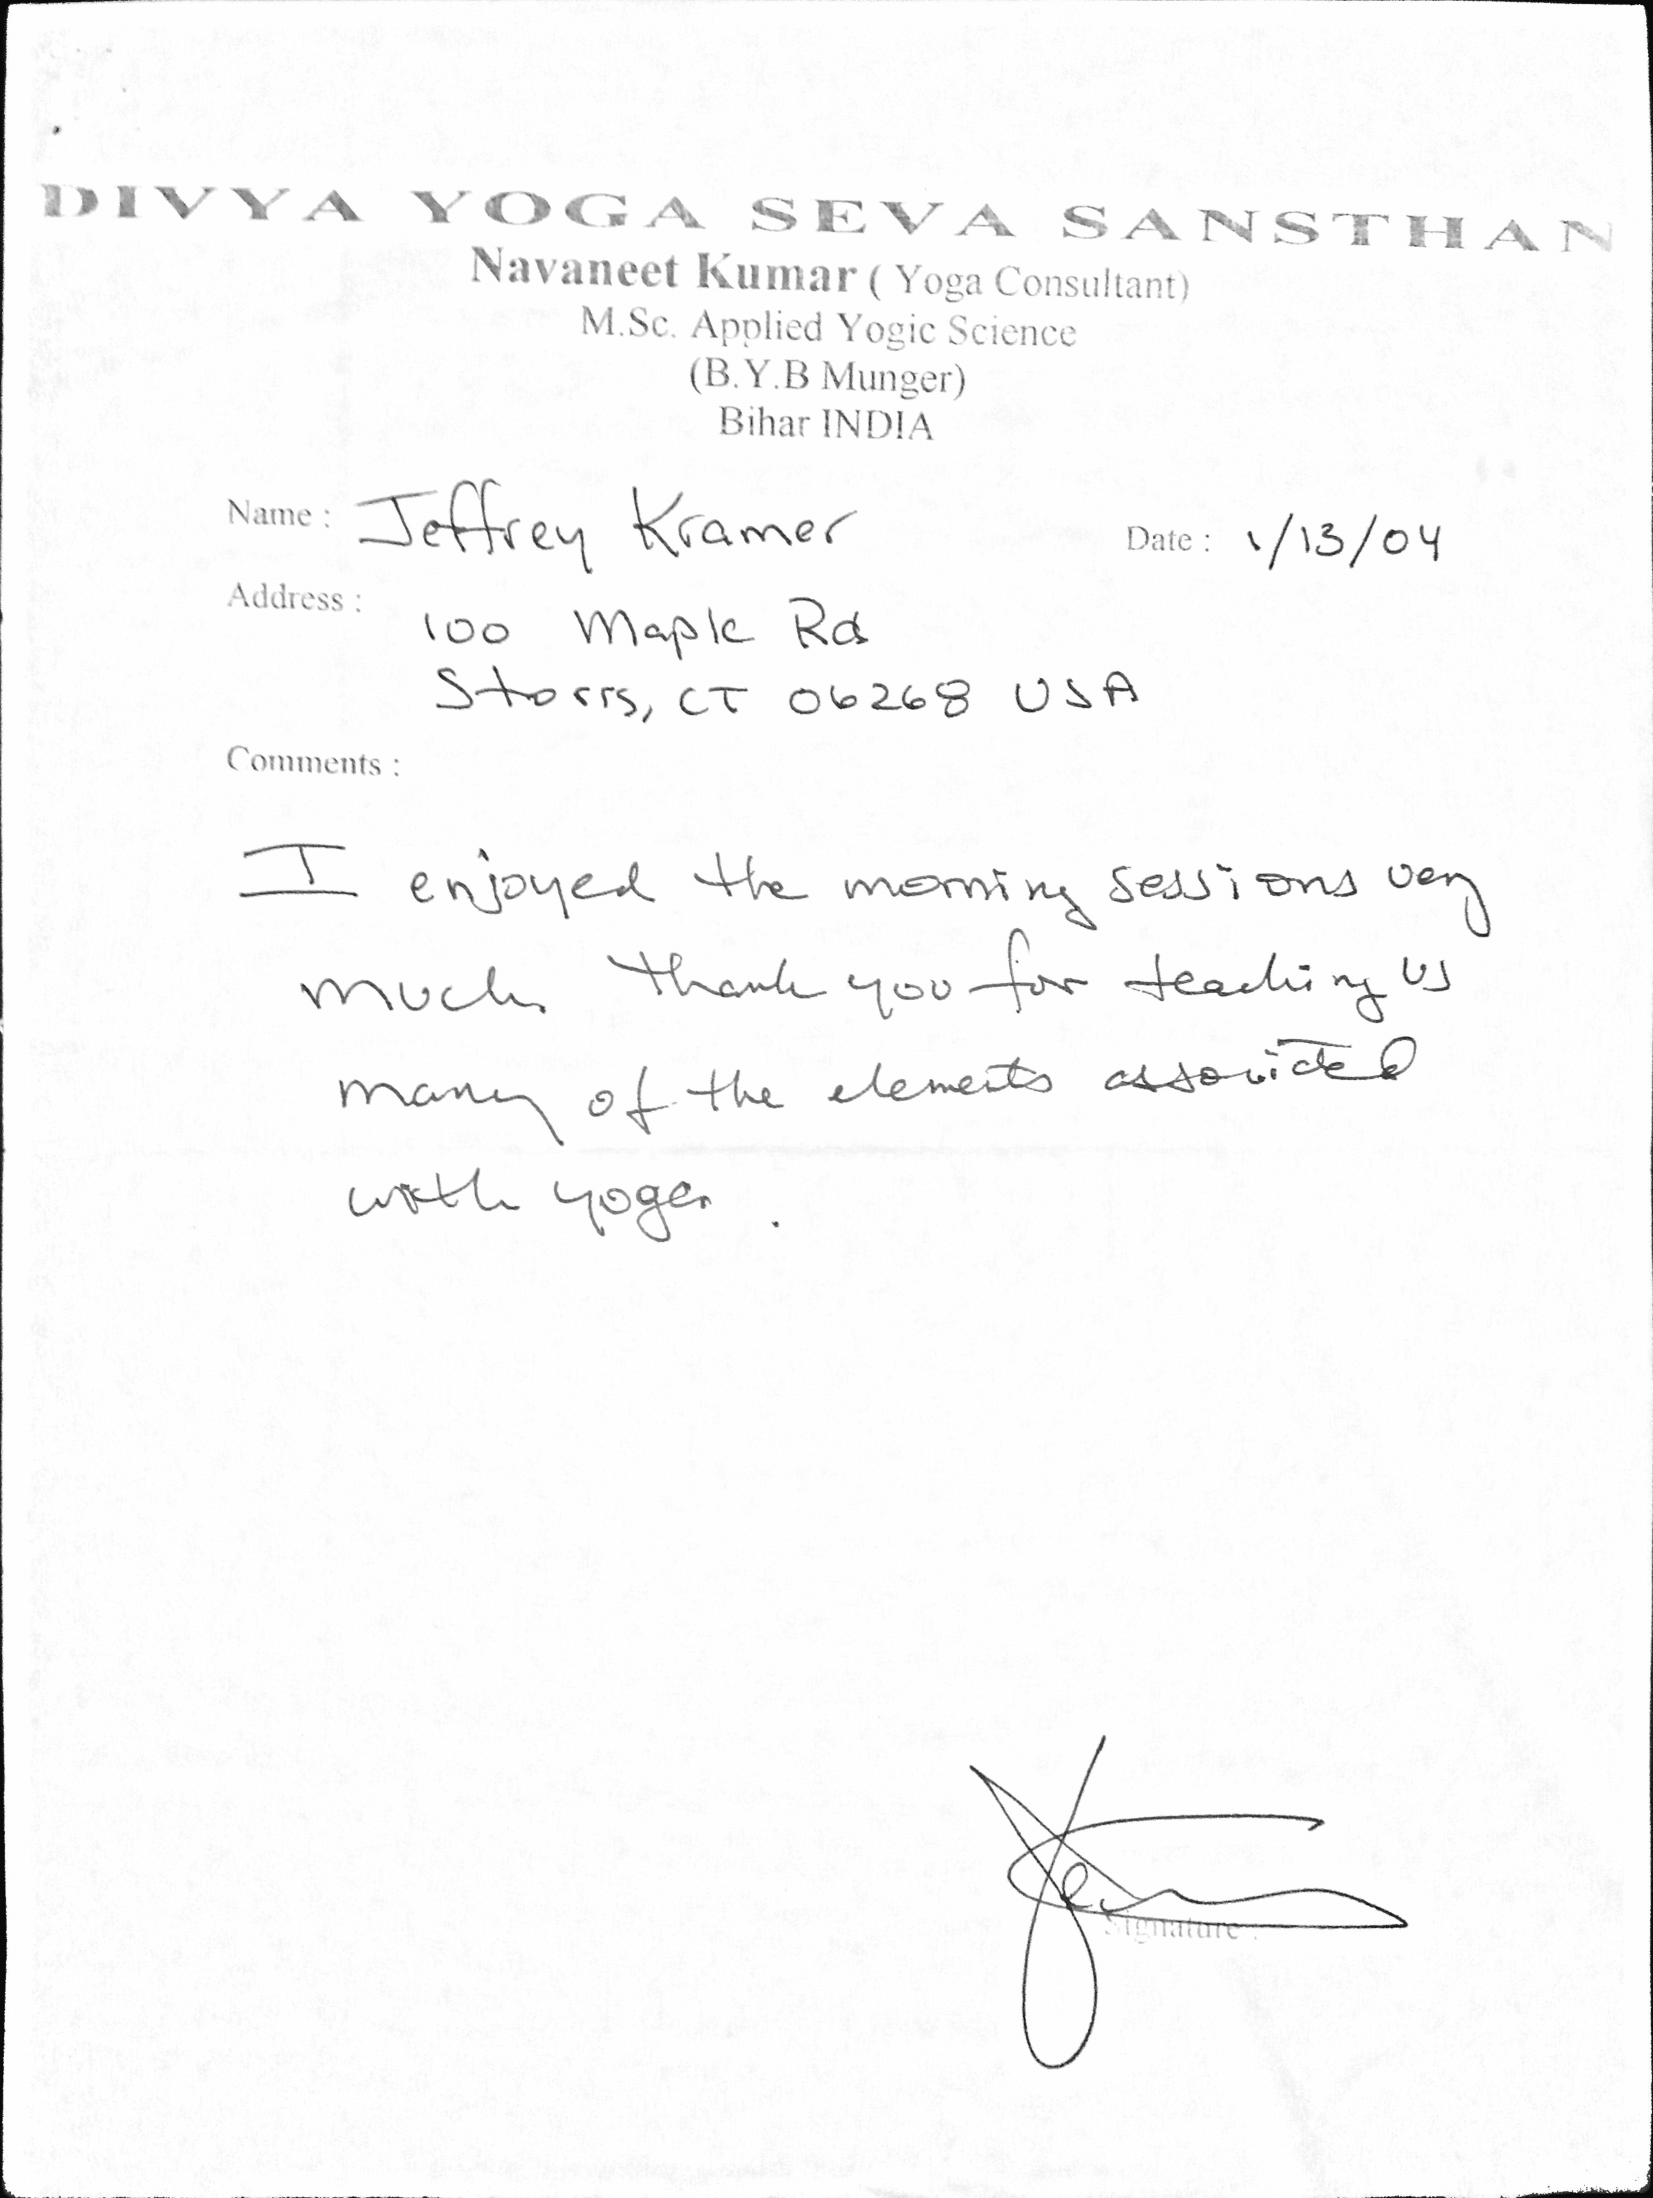 DIVYA YOGA SEVA SANSTHAN
Navaneet Kumar ( Yoga Consultant)
M.Sc. Applied Yogic Science
(B.Y.B Munger)
Bihar INDIA
Name : Jeffrey Kramer Date : 1/13/04
Address :
100 Maple Rd
Storrs, CT 06268 USA
Comments :
I enjoyed the morning sessions very
much. Thank you for teaching us
many of the elements associated
with yoga.
Signature :